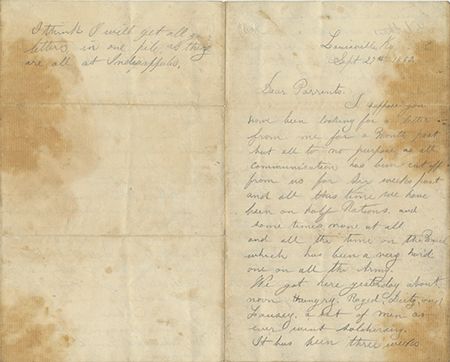 I think I will get all
letters in one pile as they
are all at Indianappolis.
Louisville Ky
Sept 27th 1862
Dear Parrents.
I suppose you
have been looking for a letter
from me for a Month past
but all to no purpose as all
communication has been cut off
from us for six weeks past
and all this time we have
been on half Rations, and
some times none at all
and all the time on the March
which has been a very hard
one on all the Army.
We got here yesterday about
noon Hungry, Raged, Dirty and
Lousey, a Set of men as
ever went soldiering.
It has been three weeks